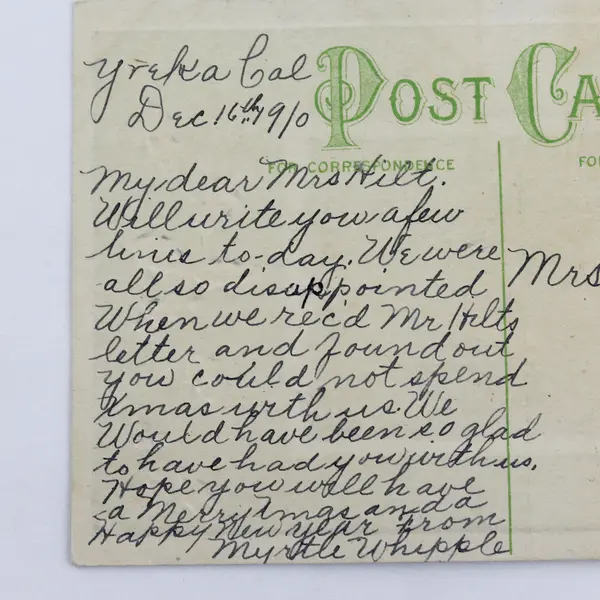 Yreka Cal
Dec 16th 1910
POST CA
FOR CORRESPONDENCE
FO
My dear Mrs Hilt.
Will write you a few
lines to-day. We were
all so disappointed
When we rec'd Mr Hilts
letter and found out
you could not spend
Xmas with us. We
Would have been so glad
to have had you with us.
Hope you will have
a Merry Xmas and a
Happy New Year from
Myrtle Whipple
Mrs